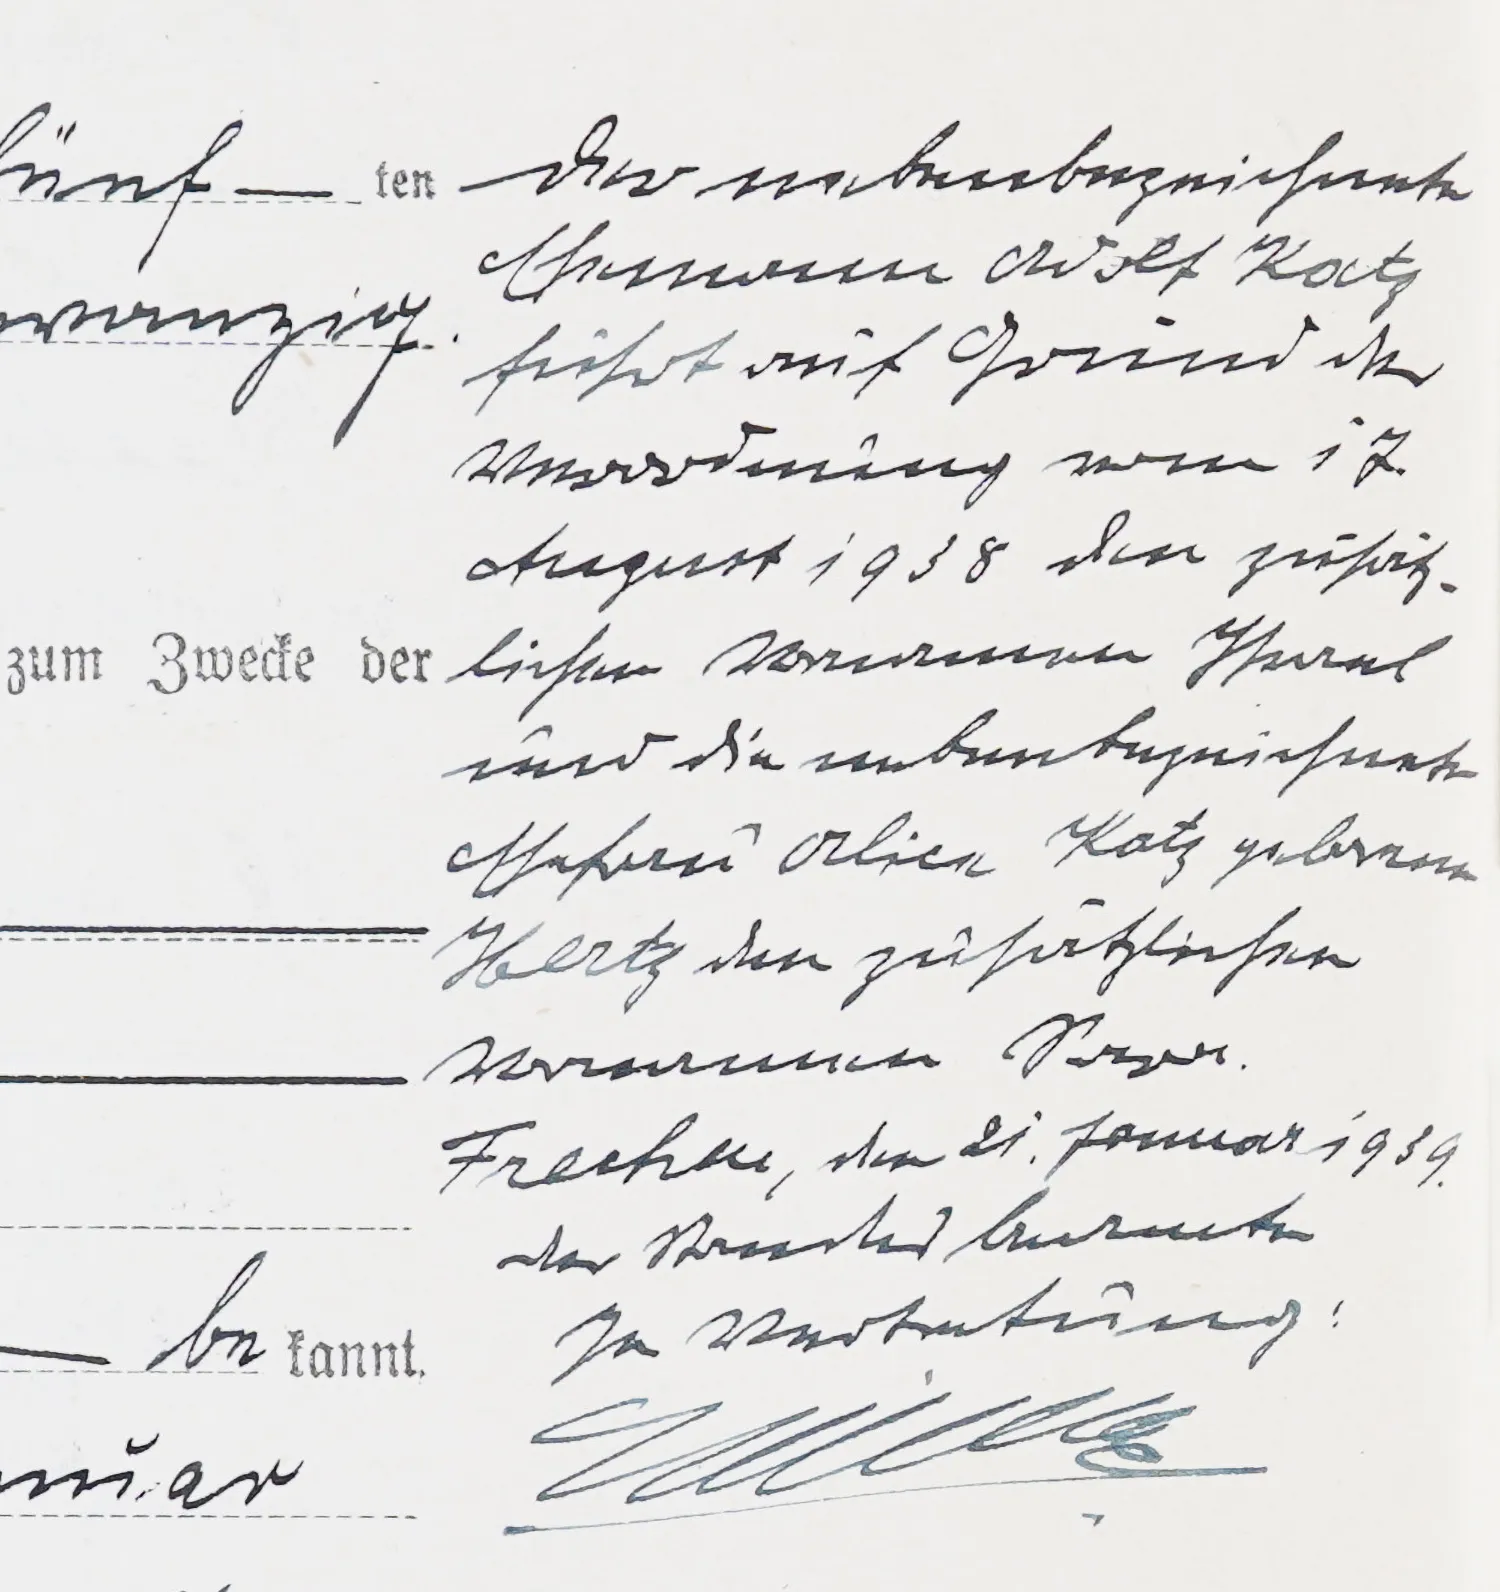 fünf — ten
wanzig.
zum Zwecke der
be kannt.
nuar
Der nebenbezeichnete
Ehemann Adolf Katz
führt auf Grund der
Verordnung vom 17.
August 1938 den zusätz-
lichen Vornamen Israel
und die nebenbezeichnete
Ehefrau Alice Katz geborene
Hertz den zusätzlichen
Vornamen Sara.
Frechen, den 21. Januar 1939.
der Standesbeamte
In Vertretung: